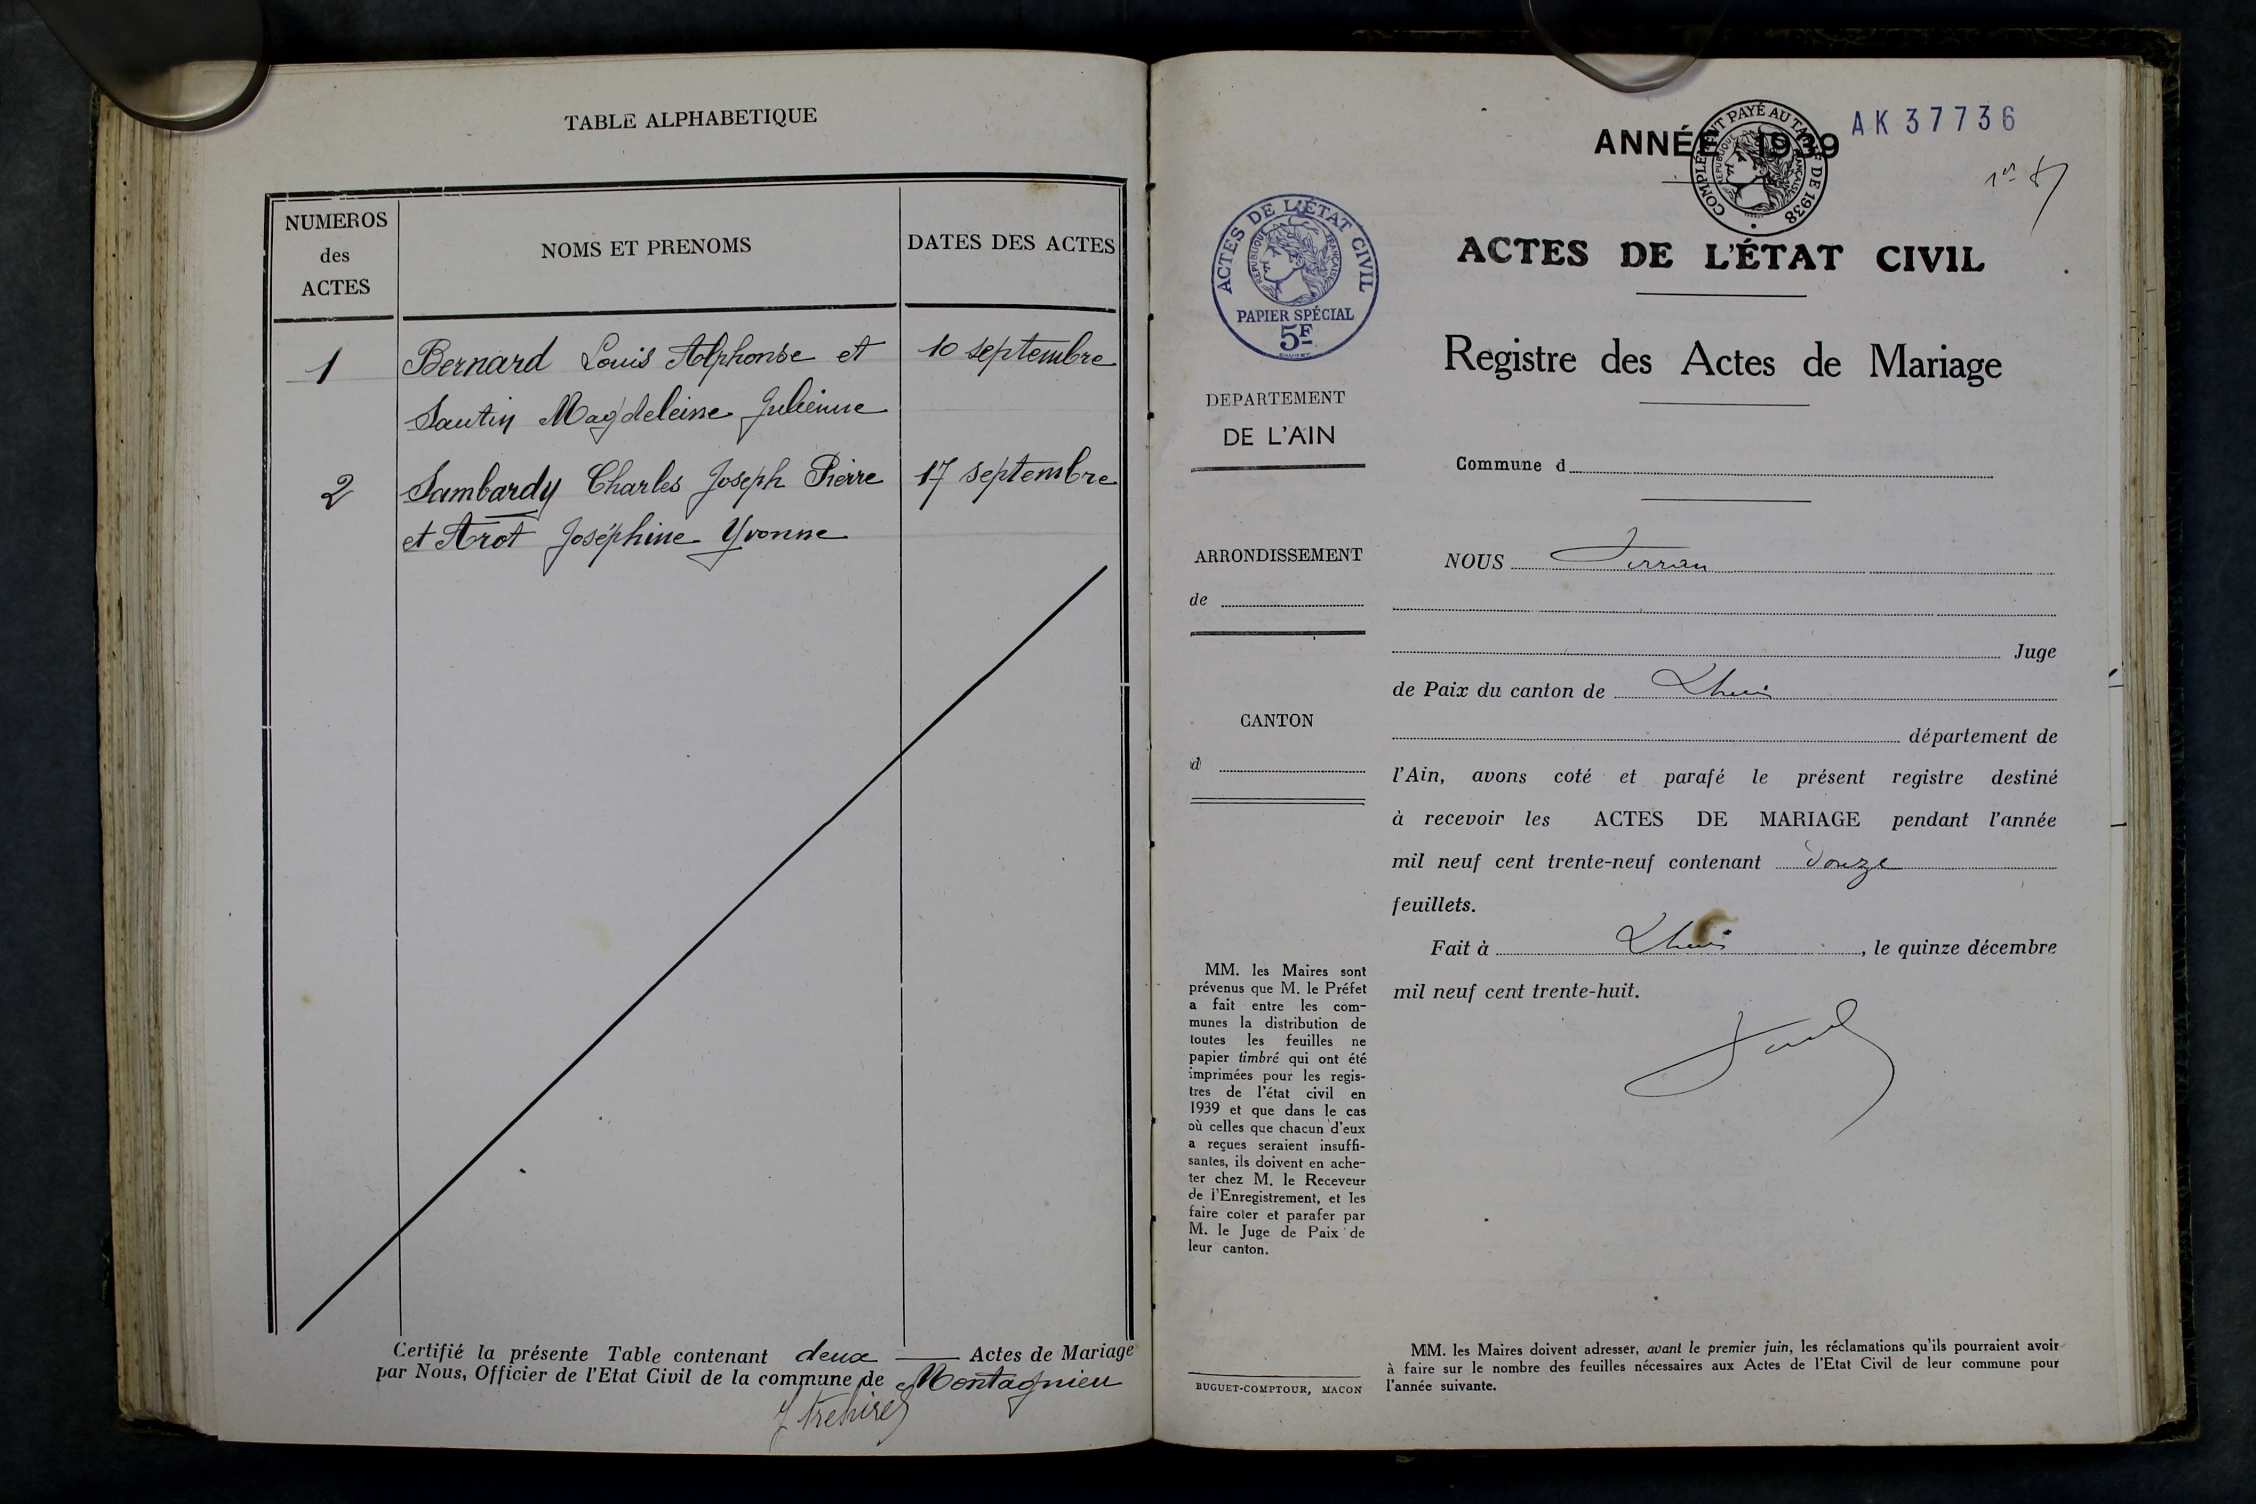 TABLE ALPHABETIQUE
NUMEROS
des
ACTES
NOMS ET PRENOMS
DATES DES ACTES
1 Bernard Louis Alphonse et 10 septembre
Sautin Magdeleine Julienne
2 Sambardy Charles Joseph Pierre 17 septembre
et Arot Joséphine Yvonne
Certifié la présente Table contenant deux Actes de Mariage
par Nous, Officier de l'Etat Civil de la commune de Montagnieu
ANNÉE 1939
AK 37736
COMPLÉMENT PAYÉ AU TARIF DE 1938
RÉPUBLIQUE FRANÇAISE
1er
ACTES DE L'ÉTAT CIVIL
RÉPUBLIQUE FRANÇAISE
PAPIER SPÉCIAL
5F
ACTES DE L'ÉTAT CIVIL
Registre des Actes de Mariage
DEPARTEMENT
DE L'AIN
ARRONDISSEMENT
de
CANTON
d
MM. les Maires sont
prévenus que M. le Préfet
a fait entre les com-
munes la distribution de
toutes les feuilles ne
papier timbré qui ont été
imprimées pour les regis-
tres de l'état civil en
1939 et que dans le cas
où celles que chacun d'eux
a reçues seraient insuffi-
santes, ils doivent en ache-
ter chez M. le Receveur
de l'Enregistrement, et les
faire coter et parafer par
M. le Juge de Paix de
leur canton.
BUGUET-COMPTOUR, MACON
Commune d
NOUS
Juge
de Paix du canton de Lhuis
département de
l'Ain, avons coté et parafé le présent registre destiné
à recevoir les ACTES DE MARIAGE pendant l'année
mil neuf cent trente-neuf contenant douze
feuillets.
Fait à Lhuis, le quinze décembre
mil neuf cent trente-huit.
MM. les Maires doivent adresser, avant le premier juin, les réclamations qu'ils pourraient avoir
à faire sur le nombre des feuilles nécessaires aux Actes de l'Etat Civil de leur commune pour
l'année suivante.